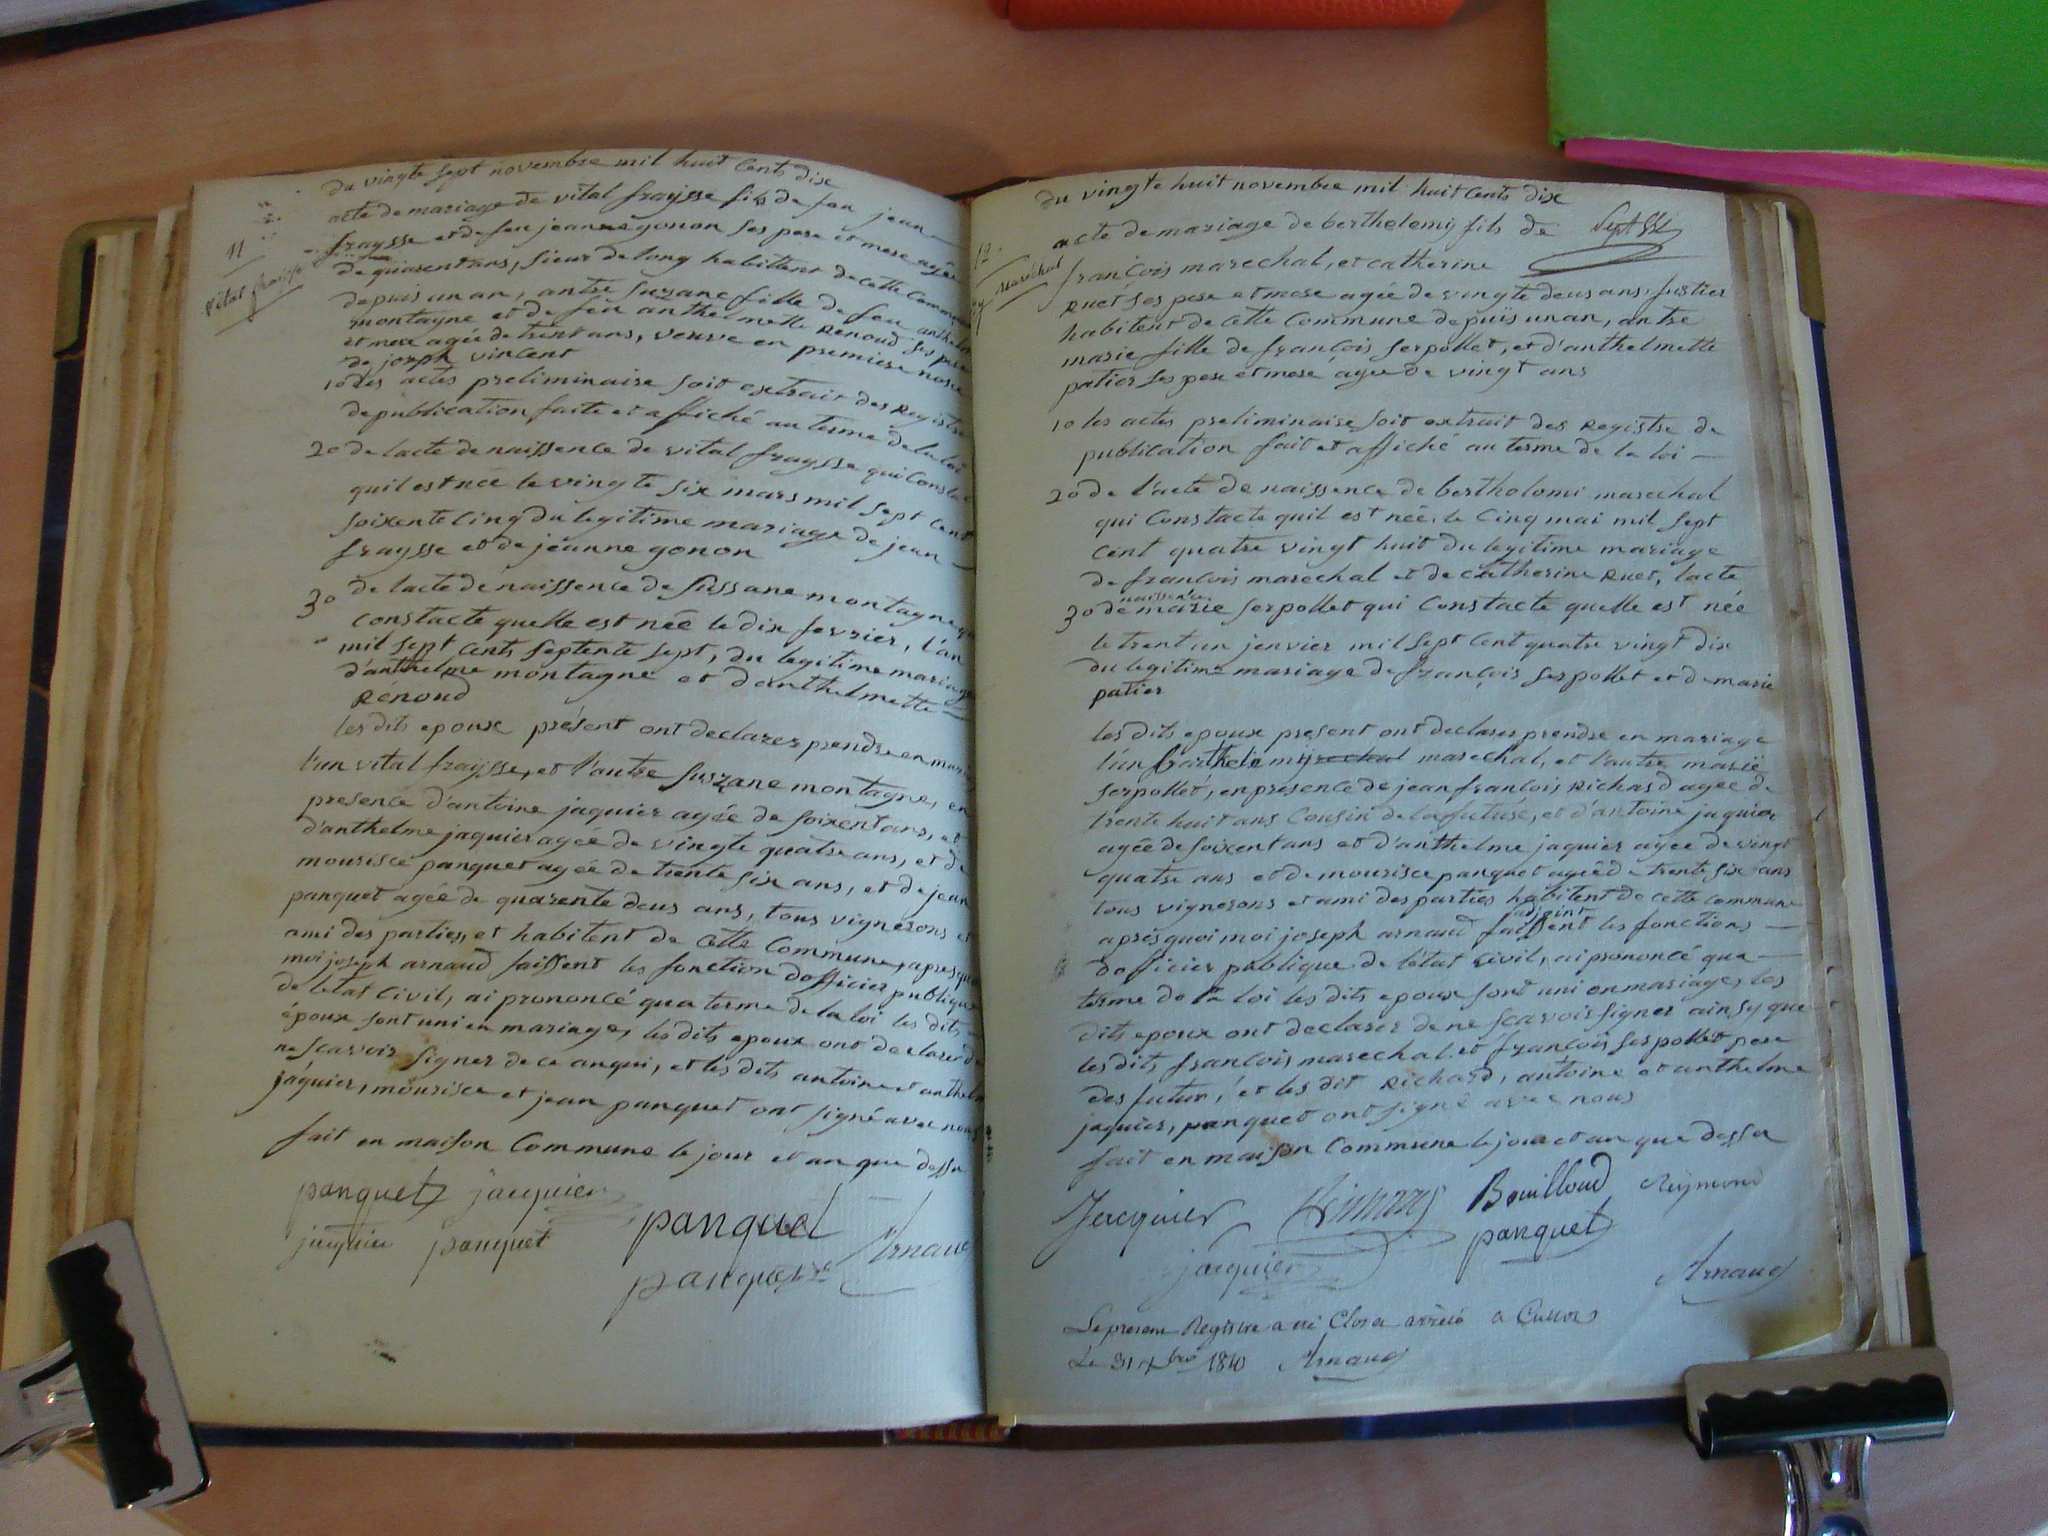 du vingte sept novembre mil huit Cents dix
11
vital fraysse
acte de mariage de vital fraysse fils de feu jean
fraysse et de feu jeanne gonon ses pere et mere agée
de quarent ans, sieur de long habitent de cette Commune
depuis un an, antre suzane fille de feu anthelme
montagne et de feu anthelmette Renoud ses pere
et mere agée de trent ans, veuve en premiere nose
de joseph vincent
1o des actes preliminaire soit extrait des Registre
de publication faite et affiché au terme de la loi
2o de lacte de naissence de vital fraysse qui Constacte
quil est née le vingte six mars mil sept Cent
soixente Cinq du legitime mariage de jean
fraysse et de jeanne gonon
3o de lacte de naissence de sussane montagne qui
Constacte quelle est née le dix fevrier, l'an
mil sept Cents septente sept, du legitime mariage
d'anthelme montagne et d'anthelmette
Renoud
les dits epoux présent ont declarer prendre en mariage
l'un vital fraysse, et l'autre suszane montagne, en
presence d'antoine jaquier agée de soixent ans, et
d'anthelme jaquier agée de vingte quatre ans, et de
mourisce panquet agée de trente six ans, et de jean
panquet agée de quarente deus ans, tous vignerons et
ami des parties, et habitent de cette Commune, apres quoi
moi joseph arnaud faissent les fonction dofficier publique
de letat Civil, ai prononcé qua terme de la loi les dits
époux sont uni en mariage, les dits epoux ont declarer de
ne scavoir signer de ce anqui, et les dits antoine et anthelme
jaquier, mourisce et jean panquet ont signé avec nous
fait en maison Commune le jour et an que dessu
panquet jacquier
jaquier panquet panquet Arnaud
du vingte huit novembre mil huit Cents dix
12
marechal
acte de mariage de bertholomy fils de
françois marechal, et catherine
Ruet ses pere et mere agée de vingte deus ans, justier
habitent de cette Commune depuis un an, antre
marie fille de françois serpollet, et d'anthelmette
patier ses pere et mere agée de vingt ans
1o les actes preliminaire soit extrait des Registre de
publication fait et affiché au terme de la loi
2o de l'acte de naissence de bertholomi marechal
qui Constacte quil est née, le Cinq mai mil sept
cent quatre vingt huit du legitime mariage
de françois marechal et de catherine Ruet, lacte
naissence
3o de marie serpollet qui Constacte quelle est née
le trent un jenvier mil sept Cent quatre vingt dix
du legitime mariage de françois serpollet et de marie
patier
les dits epoux present ont declarer prendre en mariage
l'un marechal, et l'autre marie
serpollet, en présence de jean françois Richard agée de
trente huit ans Cousin de la future, et d'antoine jaquier
agée de soixent ans et d'anthelme jaquier agée de vingt
quatre ans et de mourisce panquet agée de trente six ans
tous vignerons et ami des parties habitent de cette commune
adjoint
aprés quoi moi joseph arnaud faissent les fonctions
dofficier publique de l'état Civil, ai prononcé qua
terme de la loi les dits epoux sont uni en mariage, les
dits epoux ont declarer de ne scavoir signer ainsy que
les dits françois marechal et françois serpollet pere
des futur, et les dit Richard, antoine et anthelme
jaquier, panquet ont signé avec nous
fait en maison Commune le jour et an que dessu
Jacquier Bouilloud Reymond
jacquier panquet
Arnaud
Le present Registre a été Clos et arrété a Culloz
Le 31 Xbre 1810 Arnaud